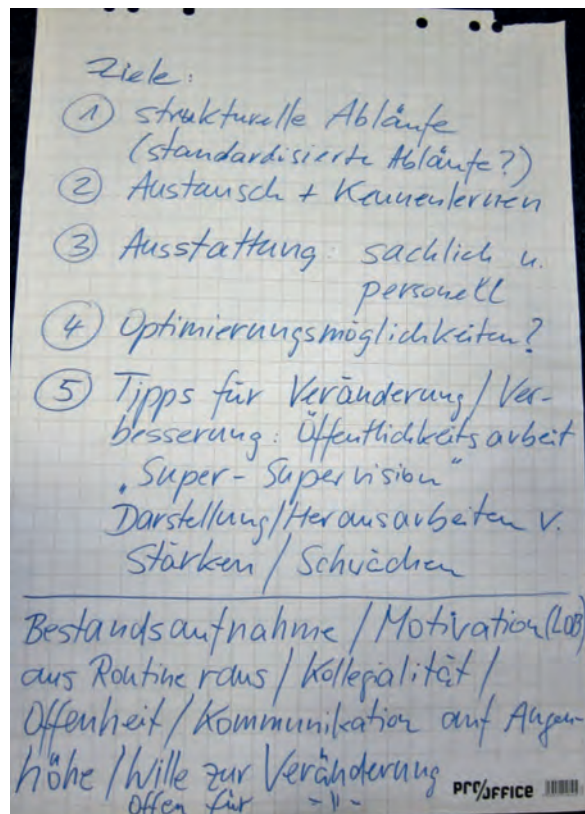 Ziele:
① strukturelle Abläufe
(standardisierte Abläufe?)
② Austausch + Kennenlernen
③ Ausstattung: sachlich u.
personell
④ Optimierungsmöglichkeiten?
⑤ Tipps für Veränderung/Ver-
besserung: Öffentlichkeitsarbeit
„Super-Supervision“
Darstellung/Herausarbeiten v.
Stärken / Schwächen
Bestandsaufnahme / Motivation (LOB)
aus Routine raus / Kollegialität /
Offenheit / Kommunikation auf Augen-
höhe / Wille zur Veränderung
offen für -"-
PRO/OFFICE